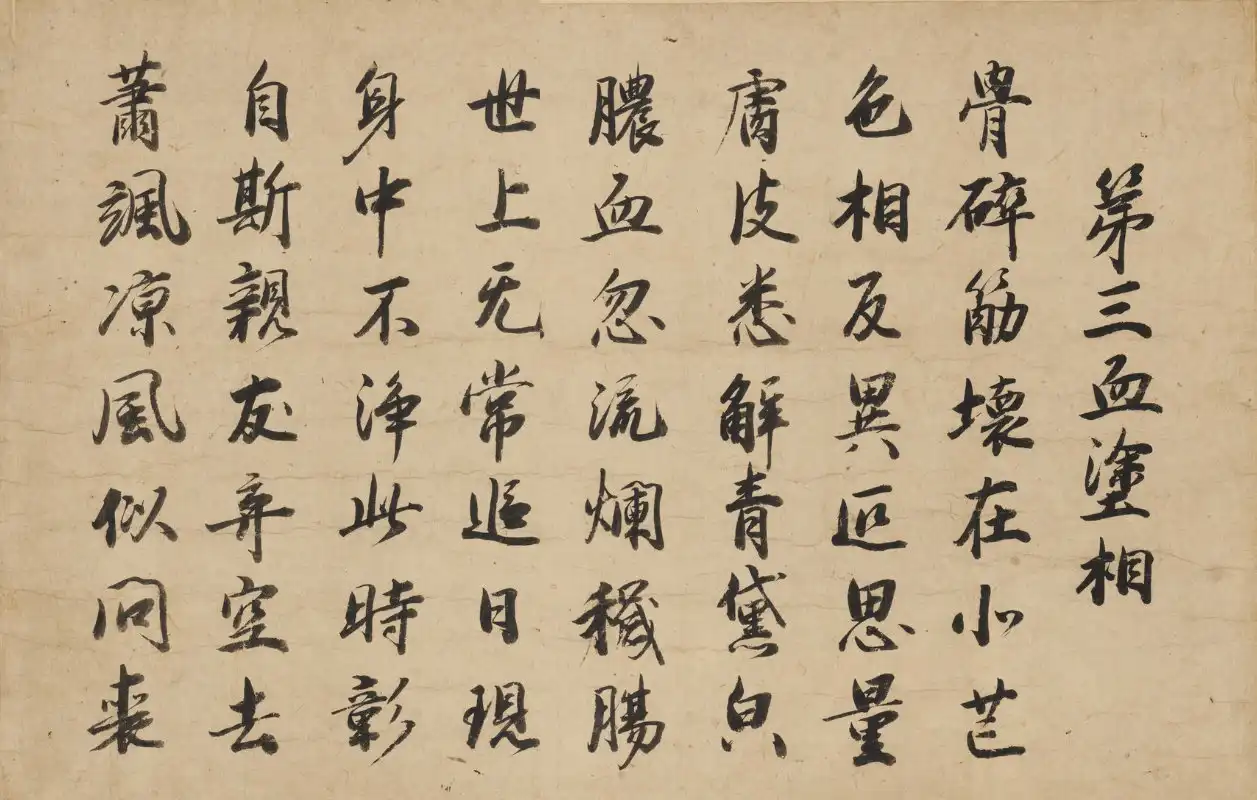 第三血塗相
骨碎筋壞在北芒
色相反異叵思量
膚皮悉解青黛皃
膿血忽流爛穢腸
世上无常追日現
身中不淨此時彰
自斯親友弃空去
蕭颯凉風似問喪